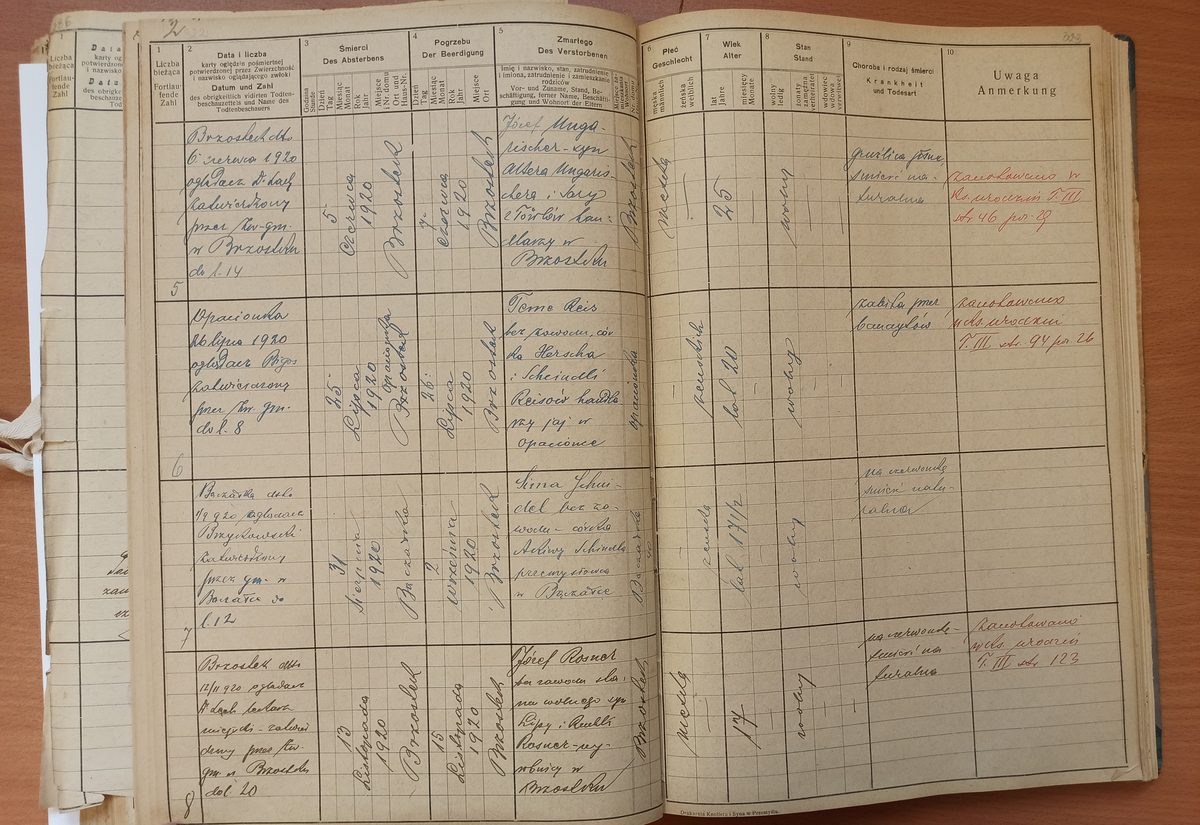 2
323
1
Liczba
bieżąca
Fortlaufende
Zahl
2
Data i liczba
karty oględzin pośmiertnej
potwierdzonej przez Zwierzchność
i nazwisko oglądającego zwłoki
Datum und Zahl
des obrigkeitlich vidirten Todten-
beschauzettels und Name des
Todtenbeschauers
3
Śmierci
Des Absterbens
Godzina
Stunde
Dzień
Tag
Miesiąc
Monat
Rok
Jahr
Miejsce
i Nr. domu
Ort und
Haus-Nr.
4
Pogrzebu
Der Beerdigung
Dzień
Tag
Miesiąc
Monat
Rok
Jahr
Miejsce
Ort
5
Zmarłego
Des Verstorbenen
Imię i nazwisko, stan, zatrudnienie
i imiona, zatrudnienie i zamieszkanie
rodziców
Vor- und Zuname, Stand, Be-
schäftigung, ferner Name, Beschäfti-
gung und Wohnort der Eltern
6
Płeć
Geschlecht
męska
männlich
żeńska
weiblich
7
Wiek
Alter
lat
Jahre
miesięcy
Monate
8
Stan
Stand
wolny
ledig
żonaty
zamężna
verheiratet
wdowiec
wdowa
verwitwet
9
Choroba i rodzaj śmierci
Krankheit
und Todesart
10
Uwaga
Anmerkung
5
Brzostek dto
6 czerwca 1920
oglądacz D. Lach
zatwierdzony
przez Zw. gm.
w Brzostku
do l. 14
5
Czerwca
1920
Brzostek
7
czerwca
1920
Brzostek
Józef Unga-
rischer syn
Altera Ungaris-
chera i Sary
w
Brzostku
Brzostek
męska
25
wolny
gruźlica płuc
śmierć na-
turalna
zanotowano w
Ks. urodzin T. III
str 46 poz. 29
6
Opacionka
26 lipca 1920
oglądacz Bigos
zatwierdzony
przez Zw. gm.
do l. 8
25
Lipca
1920
Opacionka
Brzostek
26
Lipca
1920
Brzostek
Reis
bez zawodu, cór-
ka Herscha
i Scheindli
Reisów handla-
rzy jaj w
Opacionce
Opacionka
żeńska
lat 20
wolny
zabita przez
bandytów
zanotowano
w ks. urodzin
T. III str. 94 poz 26
7
Bączałka dto
1/9 920 oglądacz
Brzykowski
zatwierdzony
przez gm. w
Bączałce do
l. 12
31
Sierpnia
1920
Bączałka
2
września
1920
Brzostek
Sima Schin-
del bez za-
wodu - córka
Akiwy Schindla
przemysłowca
w Bączałce
Bączałka
żeńska
lat 17 1/2
wolny
na czerwonkę
śmierć natu-
ralna
8
Brzostek dto
12/11 920 oglądacz
D Lach lekarz
miejski - zatwier
dzony przez Zw.
gm. w Brzostku
do l. 20
13
Listopada
1920
Brzostek
15
Listopada
1920
Brzostek
Józef Rosner
bez zawodu sta-
nu wolnego syn
Lipy i
Rosner
w
Brzostku
Brzostek
męska
17
wolny
na czerwonkę -
śmierć na
turalna
zanotowano
w ks. urodzin
T. III str. 123
Drukarnia Knollera i Syna w Przemyślu.